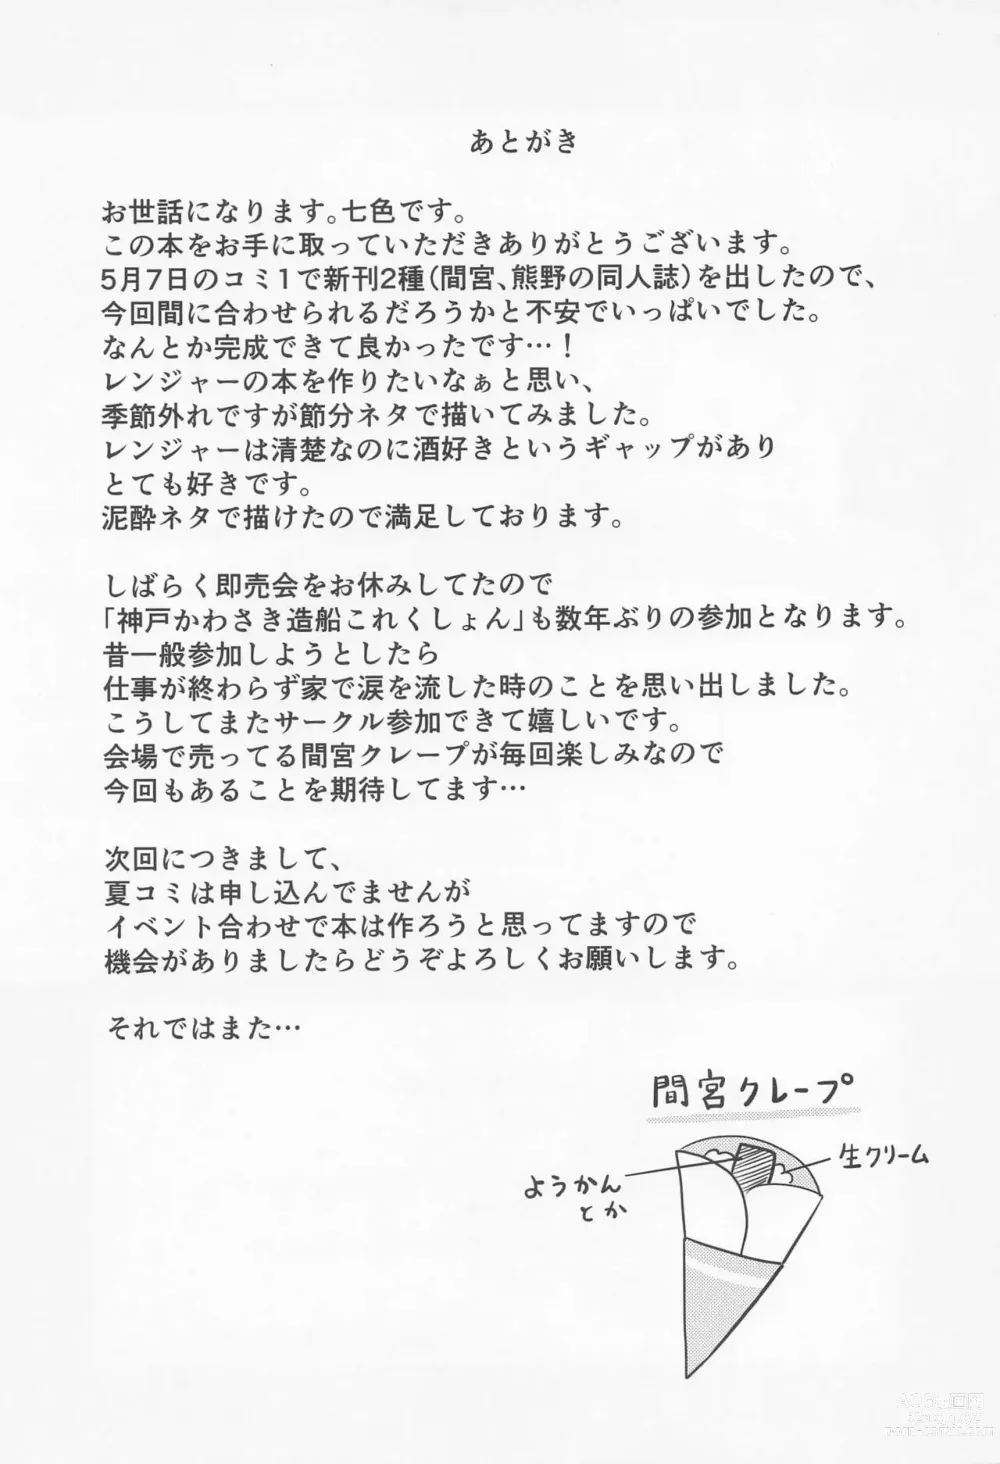 あとがき
お世話になります。七色です。
この本をお手に取っていただきありがとうございます。
5月7日のコミ1で新刊2種(間宮、熊野の同人誌)を出したので、
今回間に合わせられるだろうかと不安でいっぱいでした。
なんとか完成できて良かったです…！
レンジャーの本を作りたいなぁと思い、
季節外れですが節分ネタで描いてみました。
レンジャーは清楚なのに酒好きというギャップがあり
とても好きです。
泥酔ネタで描けたので満足しております。
しばらく即売会をお休みしてたので
「神戸かわさき造船これくしょん」も数年ぶりの参加となります。
昔一般参加しようとしたら
仕事が終わらず家で涙を流した時のことを思い出しました。
こうしてまたサークル参加できて嬉しいです。
会場で売ってる間宮クレープが毎回楽しみなので
今回もあることを期待してます…
次回につきまして、
夏コミは申し込んでませんが
イベント合わせで本は作ろうと思ってますので
機会がありましたらどうぞよろしくお願いします。
それではまた…
間宮クレープ
生クリーム
ようかん
とか